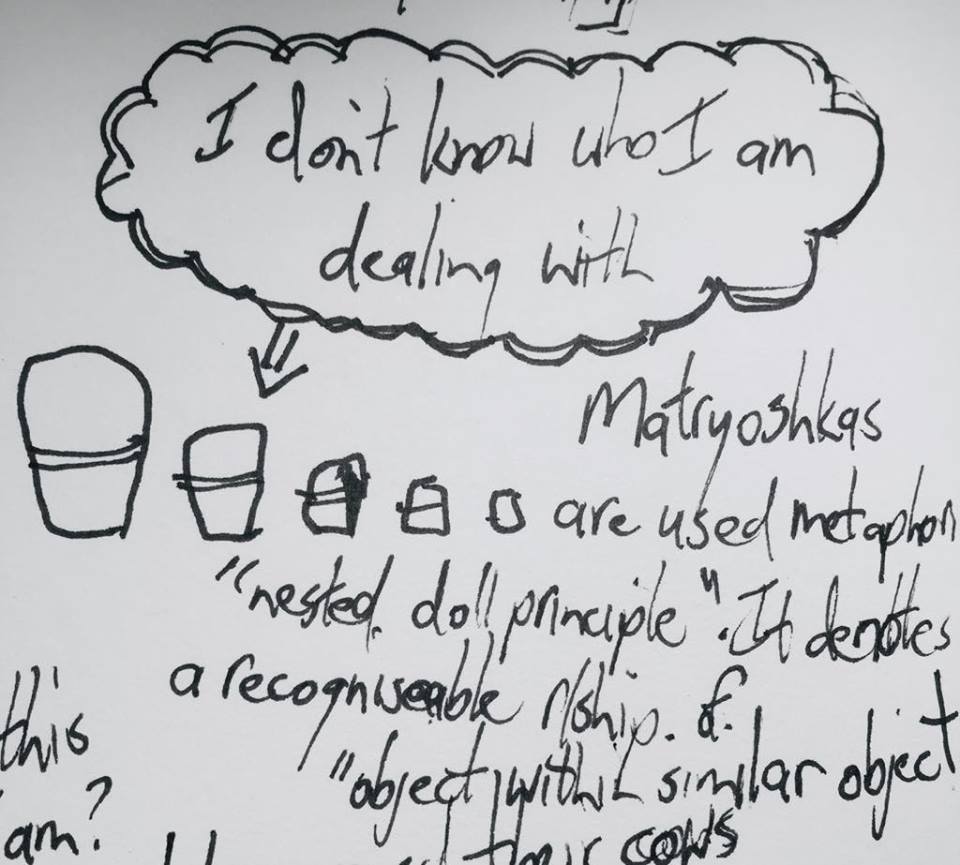 I don't know who I am
dealing with
Matryoshkas
are used metaphori
"nested doll principle". It denotes
a recogniseable r/ship. of.
"object within similar object
this
am?
their